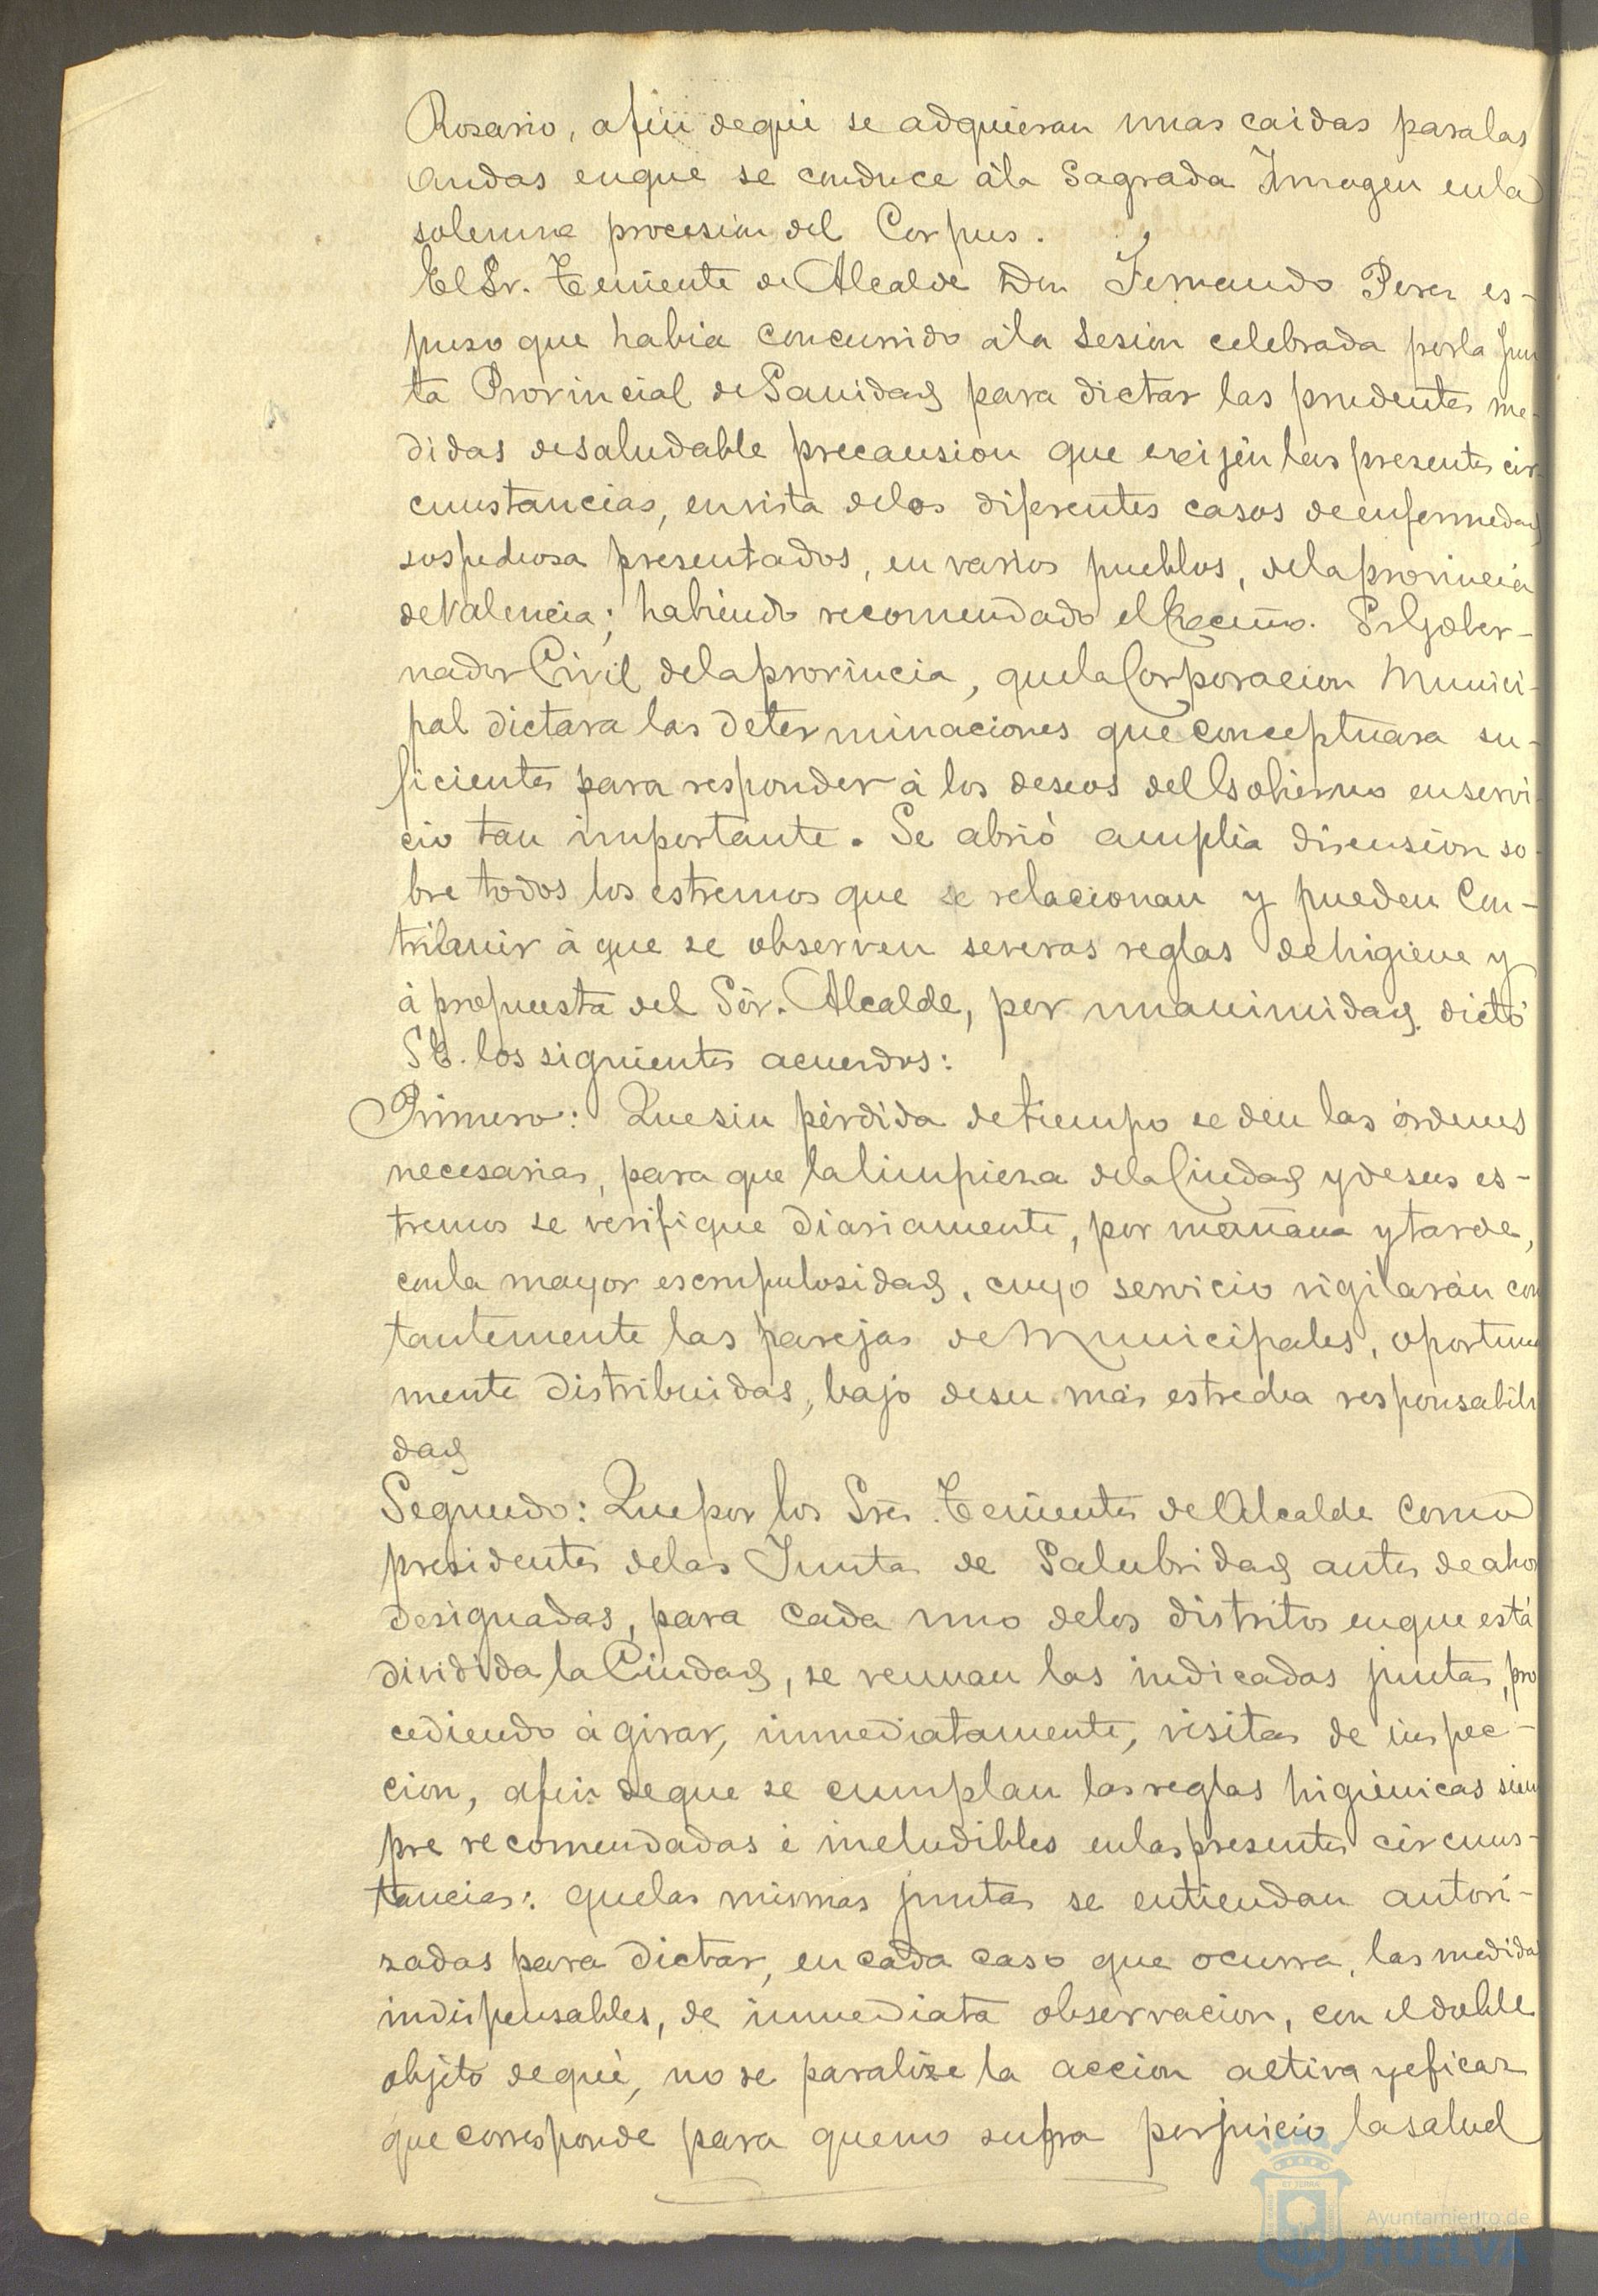 Rosario, afin deque se adquieran unas caidas paralas
andas enque se conduce ála Sagrada Imagen enla
solemne procesion del Corpus.
El Sr. Teniente de Alcalde Don Fernando Perez es-
puso que habia concurrido ála Sesion celebrada porla Jun
ta Provincial de Sanidad para dictar las prudentes me-
didas desaludable precausion que exijen las presentes cir-
cunstancias, envista delos diferentes casos deenfermedad
sospechosa presentados, en varios pueblos, dela provincia
deValencia; habiendo recomendado el Excmo. Sr Gober-
nador Civil dela provincia, quela Corporacion Munici-
pal dictara las determinaciones que conceptuara su-
ficientes para responder á los deseos del Gobierno enservi-
cio tan importante. Se abrió amplia discusion so-
bre todos los estremos que se relacionan y pueden Con-
tribuir á que se observen severas reglas dehigiene y
á propuesta del Sór. Alcalde, por unanimidad dictó
S.E. los siguientes acuerdos:
Primero: Quesin pérdida detiempo se den las órdenes
necesarias, para que la limpieza dela Ciudad y desus es-
tremos se verifique diariamente, por mañana y tarde,
conla mayor escrupulosidad, cuyo servicio vigilarán cons
tantemente las parejas de Municipales, oportuna
mente distribuidas, bajo desu más estrecha responsabili
dad
Segundo: Quepor los Sres. Tenientes de Alcalde Como
presidentes delas Juntas de Salubridad antes de ahora
designadas, para cada uno delos distritos enque está
dividida la Ciudad, se reunan las indicadas juntas, pro
cediendo á girar, inmediatamente, visitas de inspec-
cion, afin deque se cumplan las reglas higiénicas siem
pre recomendadas é ineludibles enlas presentes circuns-
tancias: quelas mismas juntas se entiendan autori-
zadas para dictar, en cada caso que ocurra, las medidas
indispensables, de inmediata observacion, con el doble
objeto deque, no se paralize la accion activa y eficaz
que corresponde para queno sufra perjuicio la salud
Ayuntamiento de
HUELVA